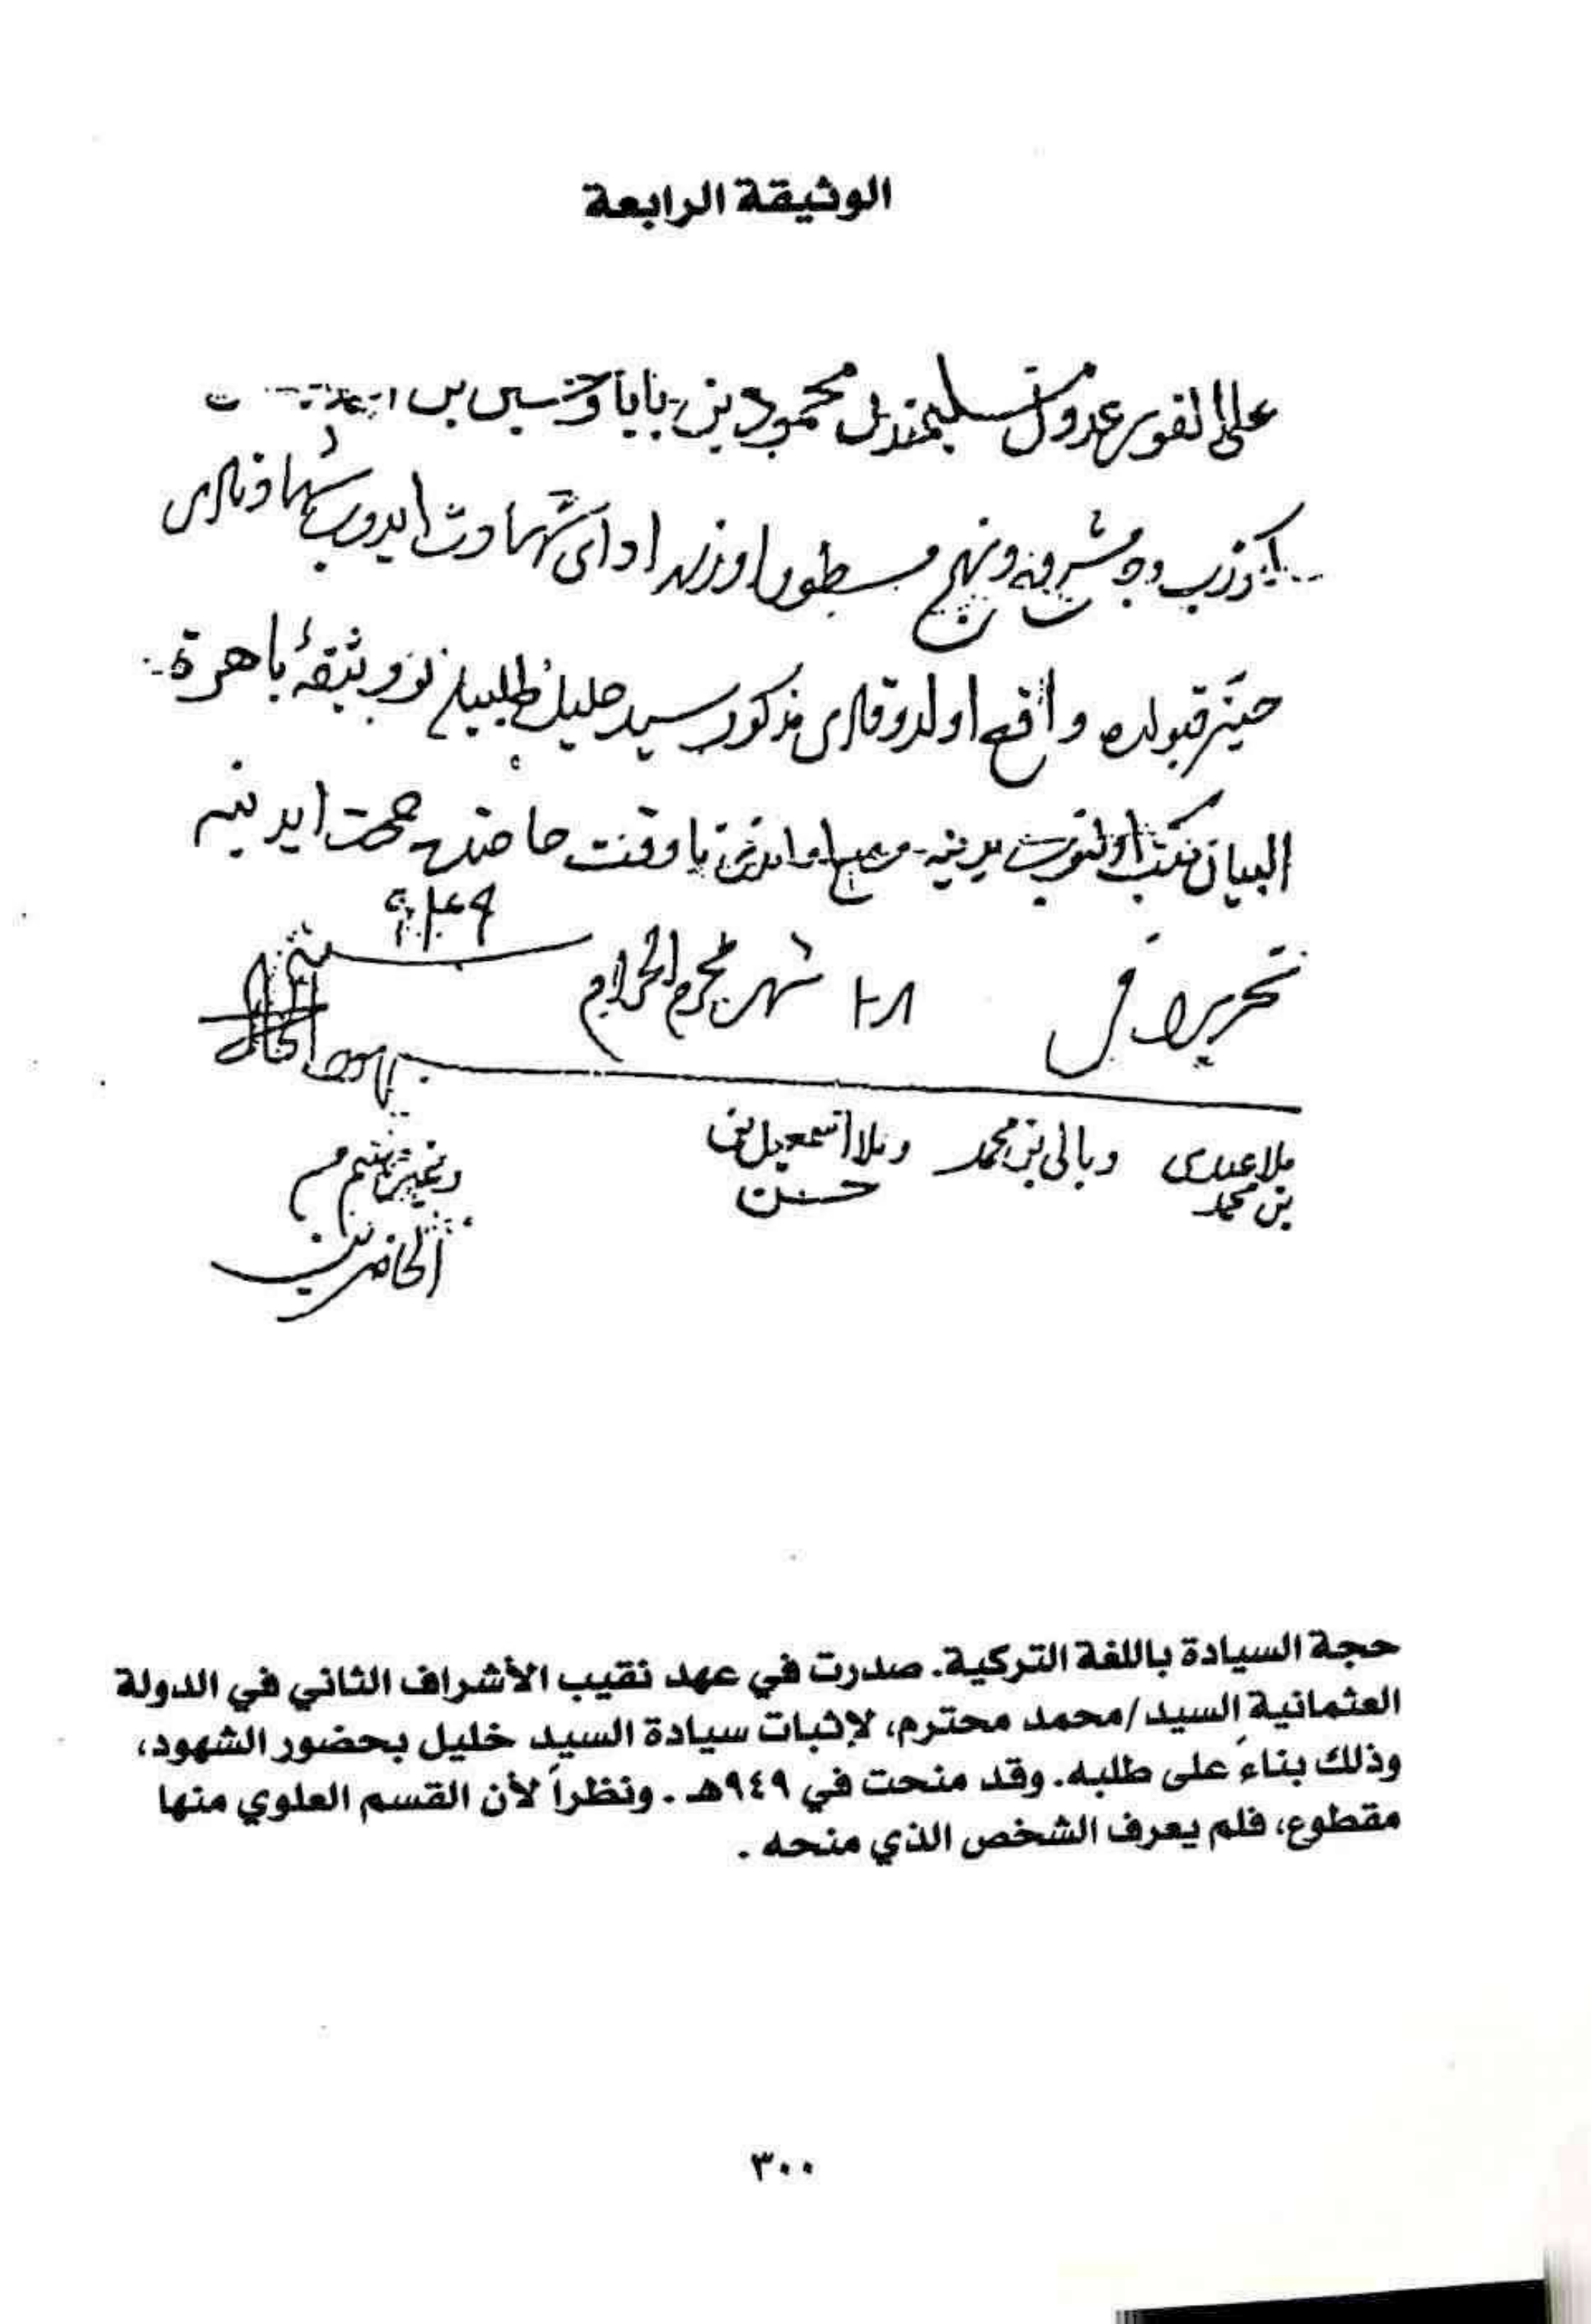 الوثيقة الرابعة
على الفور عدول مسلميندن محمود بن بابا وحسين بن
وجه مشروح ونهج مسطور اوزره اداى شهادت ايدوب شهادتلرى
حيز قبولده واقع اولدوقدن مذكور سيد خليل طلبيله بو وثيقۀ باهرة
البيان كتب اولنوب يدينه وضع اولندى تا وقت حاجتده حجت ايدينه
تحريرا فى شهر محرم الحرام سنة ٩٤٩
شهود الحال
ملا عبدى بن محمد وبالى بن محمد وملا اسمعيل بن حسن وغيرهم من الحاضرين
حجة السيادة باللغة التركية. صدرت في عهد نقيب الأشراف الثاني في الدولة
العثمانية السيد/محمد محترم، لإثبات سيادة السيد خليل بحضور الشهود،
وذلك بناءً على طلبه. وقد منحت في ٩٤٩هـ . ونظراً لأن القسم العلوي منها
مقطوع، فلم يعرف الشخص الذي منحه .
٣٠٠